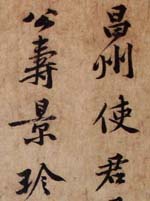 昌州使君
公壽景珍